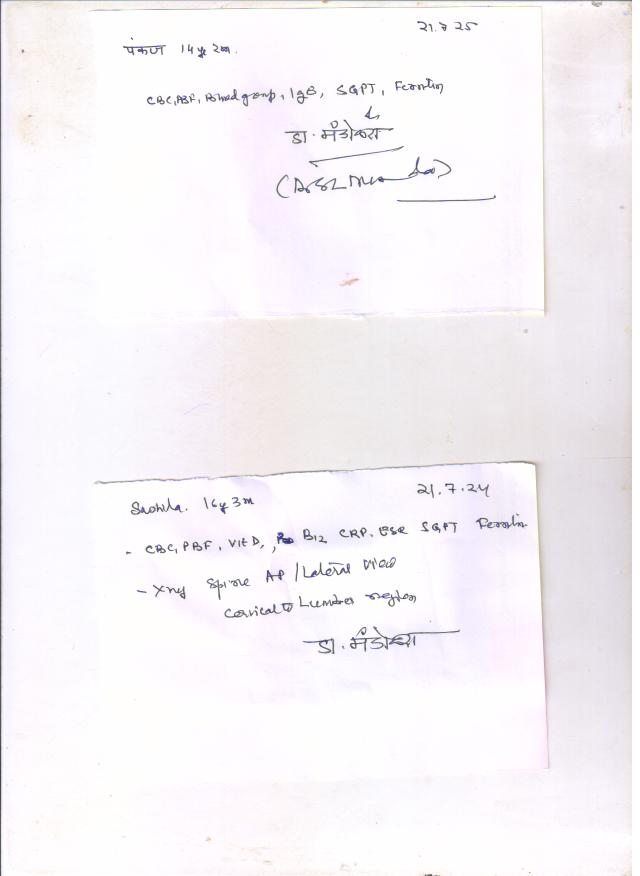 21.7.25
पंकज 14 y 2m.
CBC, PBF, Blood group, IgE, SGPT, Ferritin
डा. मंडोवरा
21.7.24
16y 3m
- CBC, PBF, Vit D, B12 CRP. ESR SGPT Ferritin
- Xray Spine AP / Lateral View
Cervical to Lumber region
डा. मंडोवरा